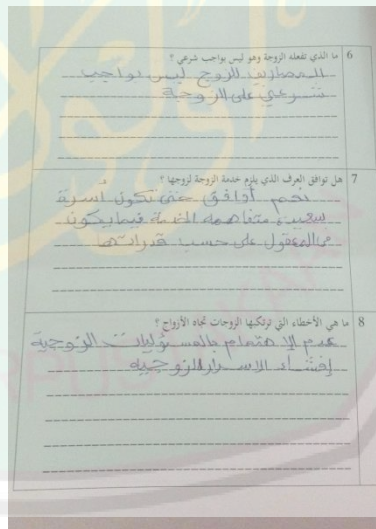 6 ما الذي تفعله الزوجة وهو ليس بواجب شرعي ؟
الزوج ليس بواجب
شرعي على الزوجة
7 هل توافق العرف الذي يلزم خدمة الزوجة لزوجها ؟
نعم أوافق حتى تكون أسرة
سعيدة متفاهمة فيما يكون
على حسب قدراتها
8 ما هي الأخطاء التي ترتكبها الزوجات تجاه الأزواج ؟
عدم الاهتمام بالمسئوليات الزوجية
إفشاء الاسرار الزوجية